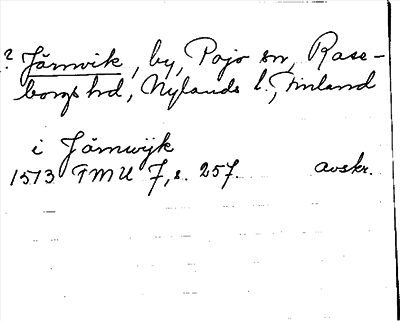 ? Järnvik, by, Pojo sn, Rase-
borgs hd, Nylands l., Finland
i Järnwijk
1513 TMU 7, s. 257. avskr.